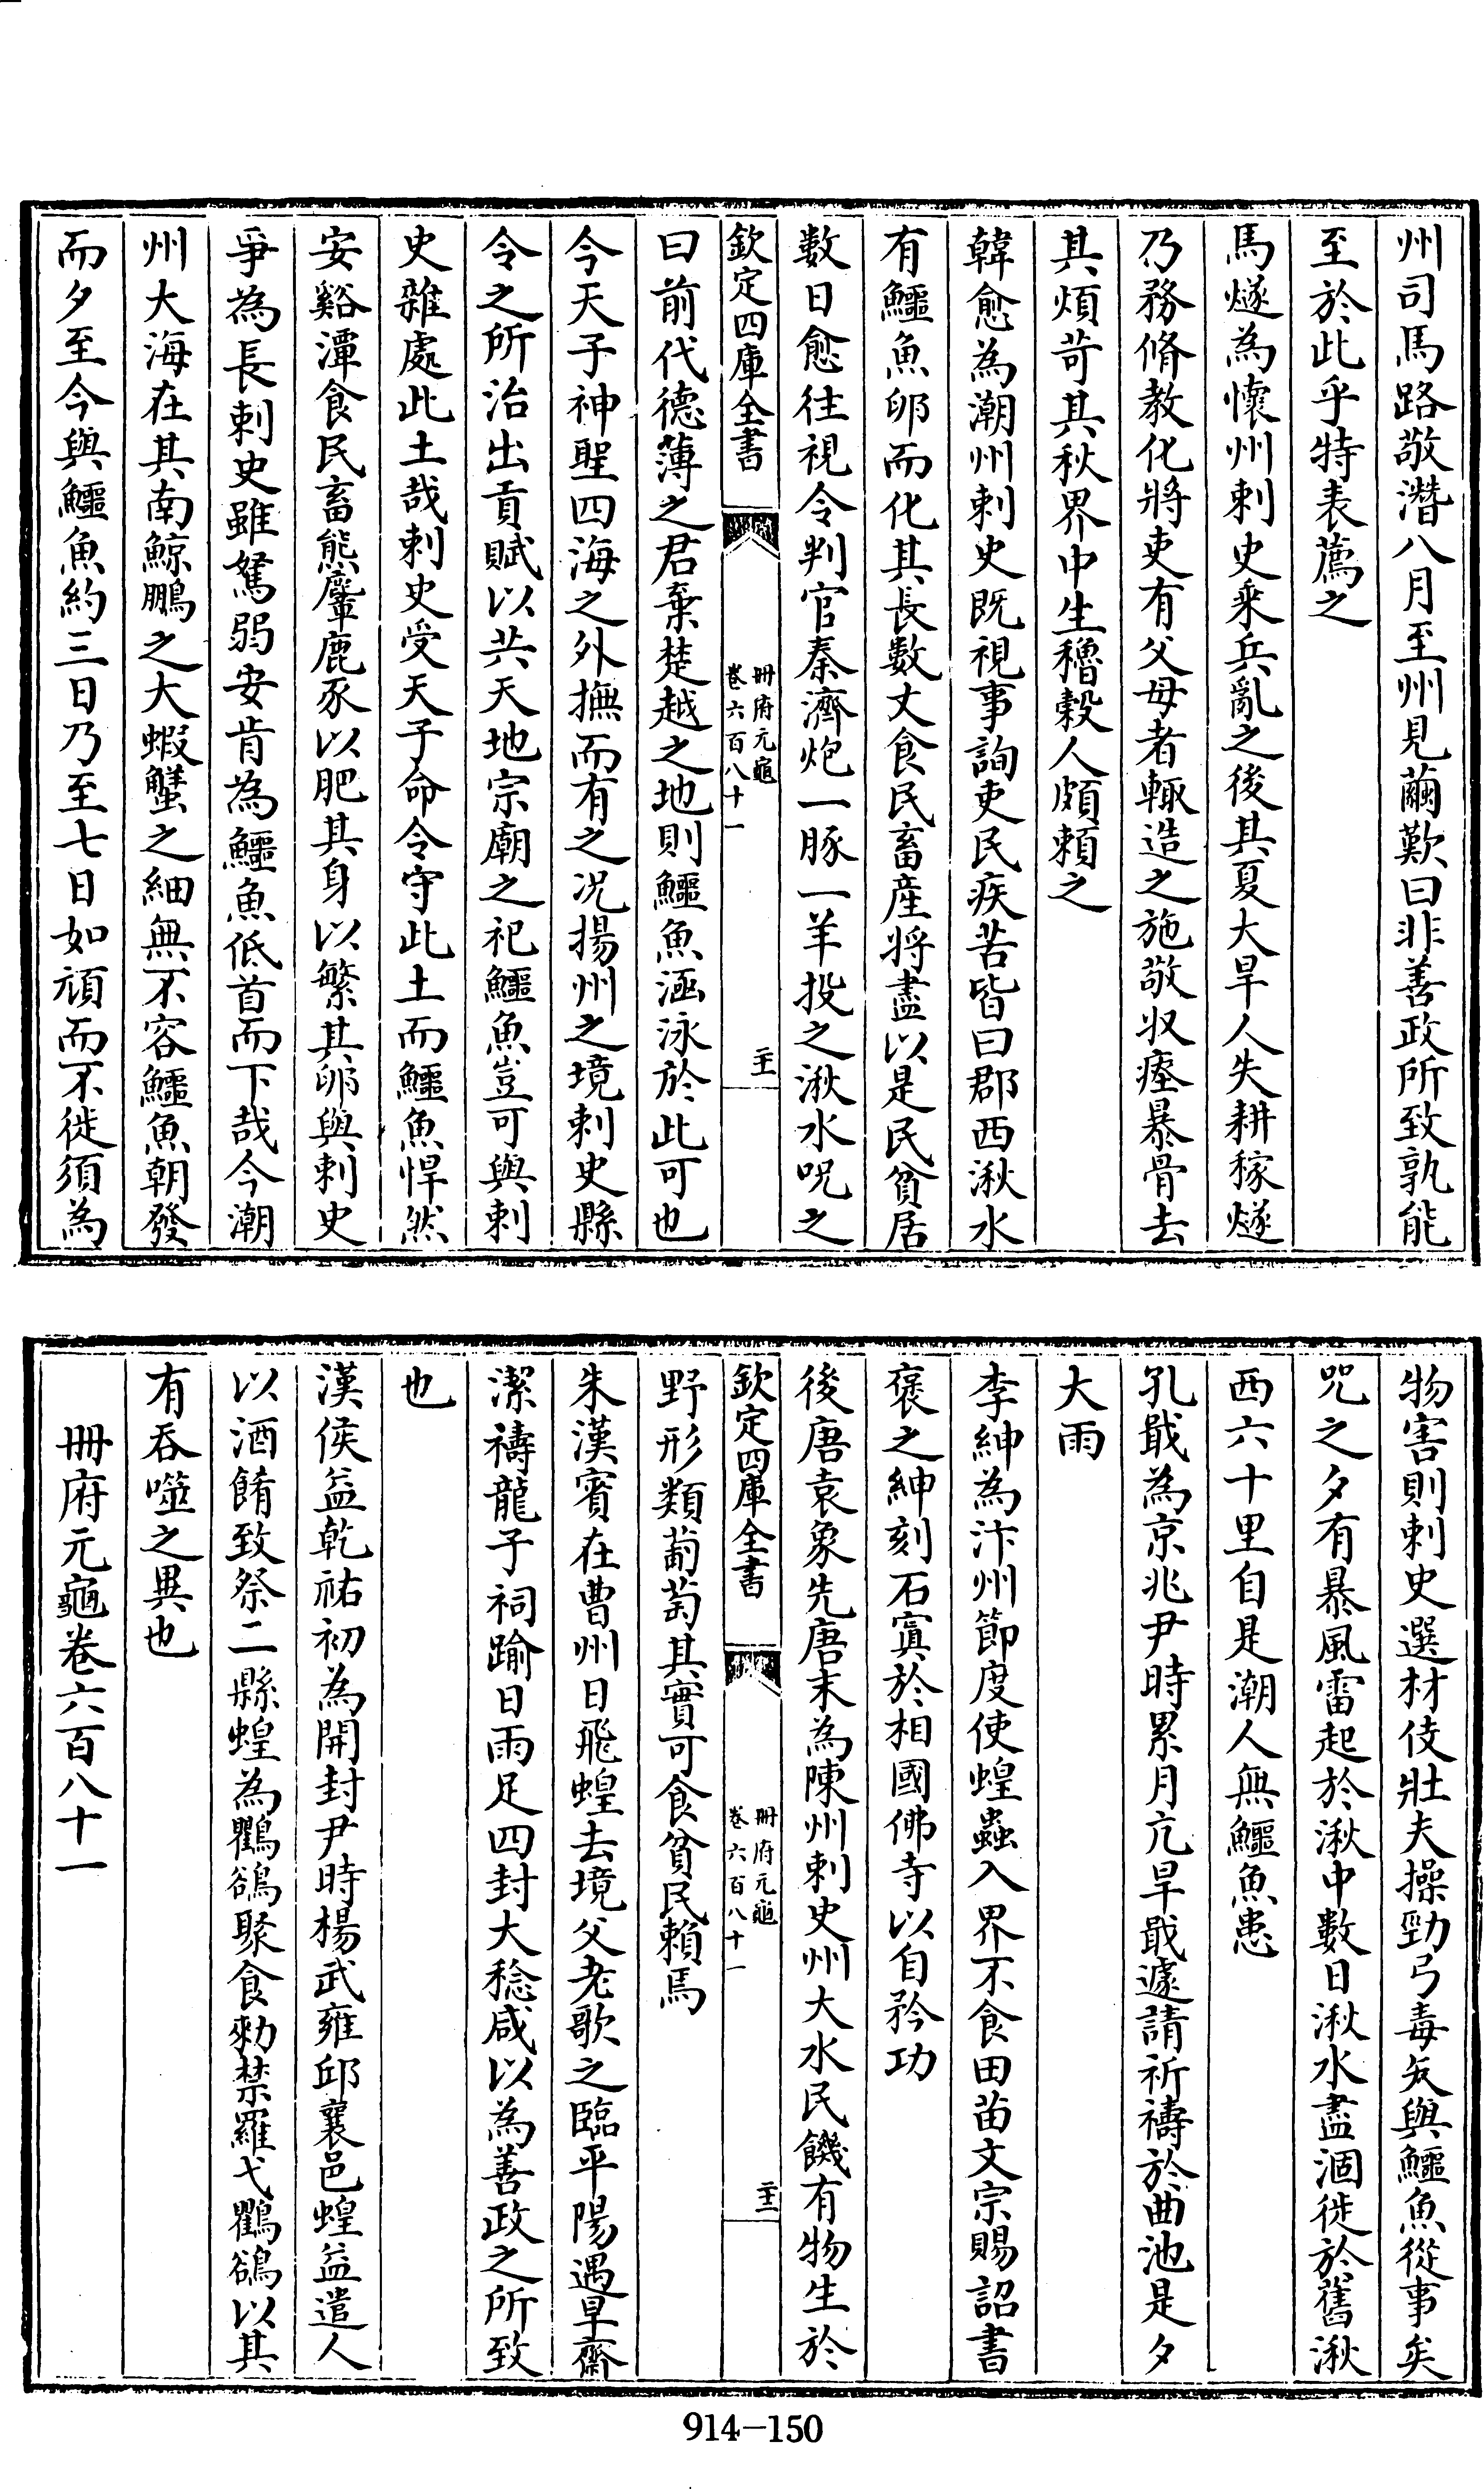 州司馬路敬濳八月至州見繭歎曰非善政所致孰能
至於此乎特表薦之
馬燧為懷州刺史乘兵亂之後其夏大旱人失耕稼燧
乃務脩教化將吏有父母者輒造之施敬収瘞暴骨去
其煩苛其秋界中生穭穀人頗賴之
韓愈為潮州刺史既視事詢吏民疾苦皆曰郡西湫水
有鱷魚卵而化其長數丈食民畜產將盡以是民貧居
數日愈往視令判官秦濟炮一豚一羊投之湫水呪之
欽定四庫全書
冊府元龜
卷六百八十一
二十一
曰前代德薄之君棄楚越之地則鱷魚涵泳於此可也
今天子神聖四海之外撫而有之况揚州之境刺史縣
令之所治出貢賦以共天地宗廟之祀鱷魚豈可與刺
史雜處此土哉刺史受天子命令守此土而鱷魚悍然
安谿潭食民畜熊麞鹿豕以肥其身以繁其卵與刺史
爭為長刺史雖駑弱安肯為鱷魚低首而下哉今潮
州大海在其南鯨鵬之大蝦蟹之細無不容鱷魚朝發
而夕至今與鱷魚約三日乃至七日如頑而不徙須為
物害則刺史選材伎壯夫操勁弓毒矢與鱷魚從事矣
呪之夕有暴風雷起於湫中數日湫水盡涸徙於舊湫
西六十里自是潮人無鱷魚患
孔戢為京兆尹時累月亢旱戢遽請祈禱於曲池是夕
大雨
李紳為汴州節度使蝗蟲入界不食田苗文宗賜詔書
褒之紳刻石寘於相國佛寺以自矜功
後唐袁象先唐末為陳州刺史州大水民饑有物生於
欽定四庫全書
冊府元龜
卷六百八十一
二十二
野形類葡萄其實可食貧民賴焉
朱漢賓在曹州日飛蝗去境父老歌之臨平陽遇旱齋
潔禱龍子祠踰日雨足四封大稔咸以為善政之所致
也
漢侯益乾祐初為開封尹時楊武雍邱襄邑蝗益遣人
以酒餚致祭二縣蝗為鸜鵒聚食勑禁羅弋鸜鵒以其
有吞噬之異也
冊府元龜卷六百八十一
914-150